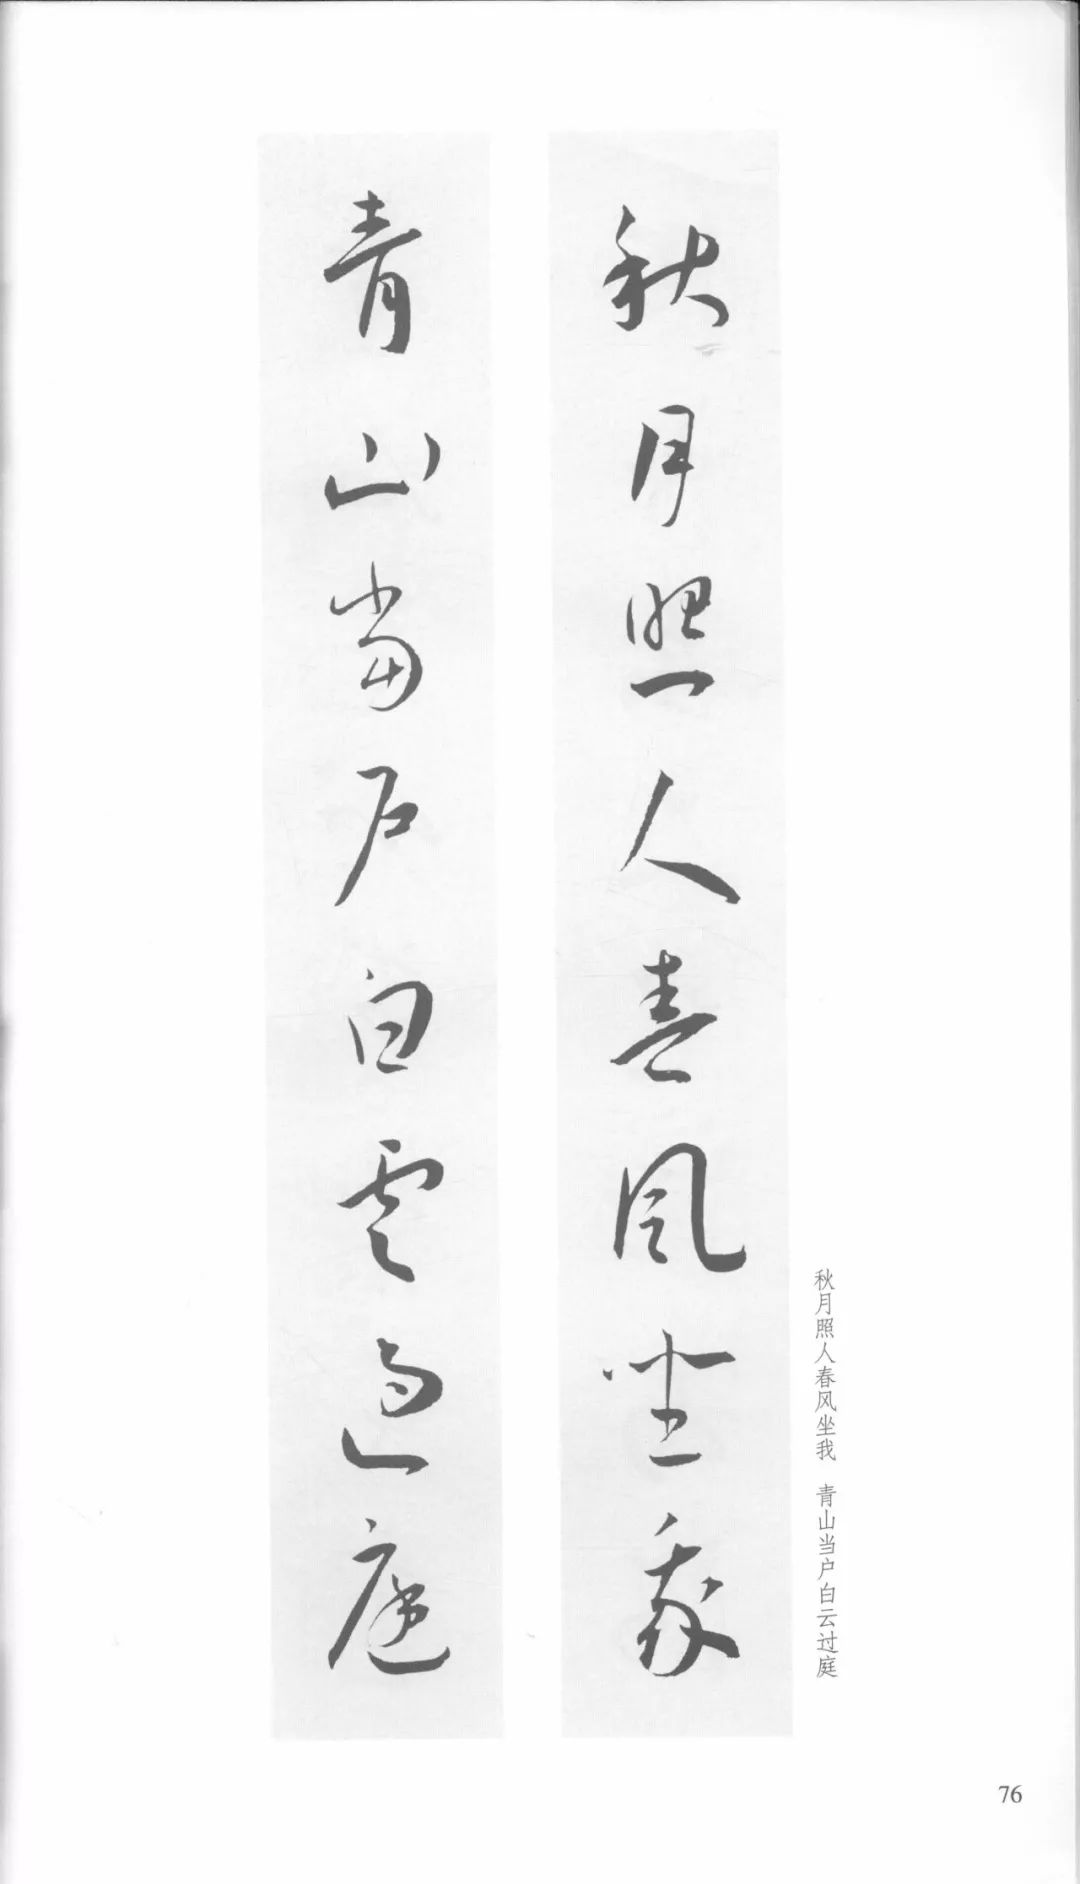 秋月照人春風坐我
青山當戶白雲過庭
秋月照人春风坐我 青山当户白云过庭
76